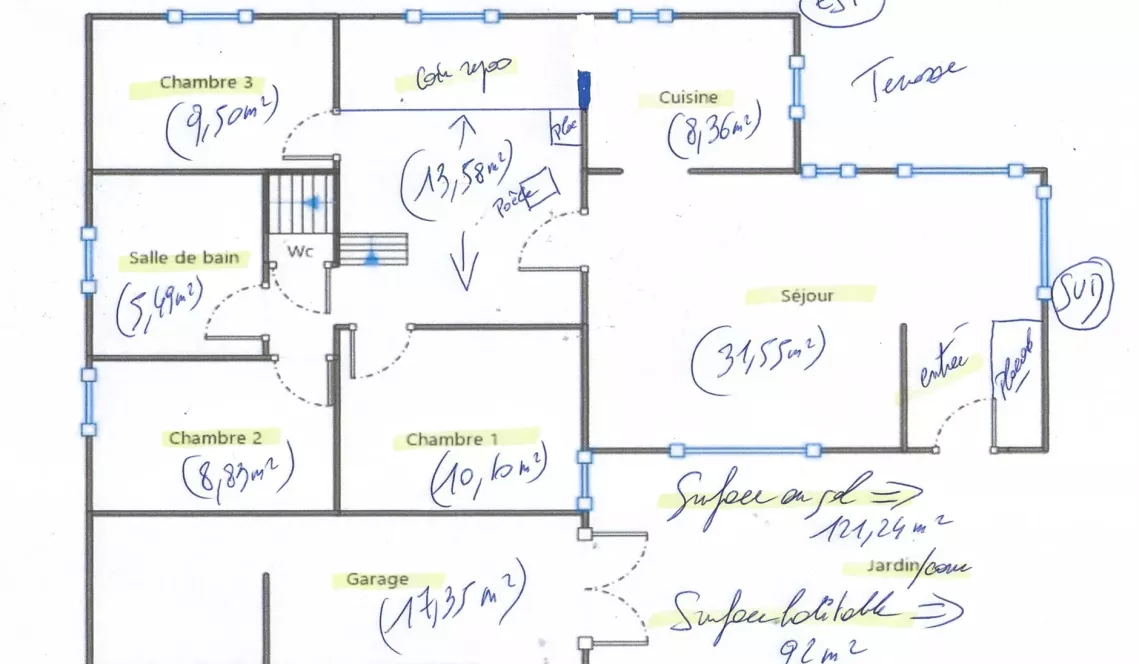 EST
Chambre 3
(9,50m²)
Coin repas
Cuisine
(8,36m²)
Terrasse
Plac
(13,58m²)
Poêle
Wc
Salle de bain
(5,49m²)
Séjour
(31,55m²)
SUD
entrée
Placard
Chambre 2
(8,83m²)
Chambre 1
(10,10m²)
Surface au sol ⇒
121,24m²
Jardin/cour
Garage
(17,35m²)
Surface habitable ⇒
92m²